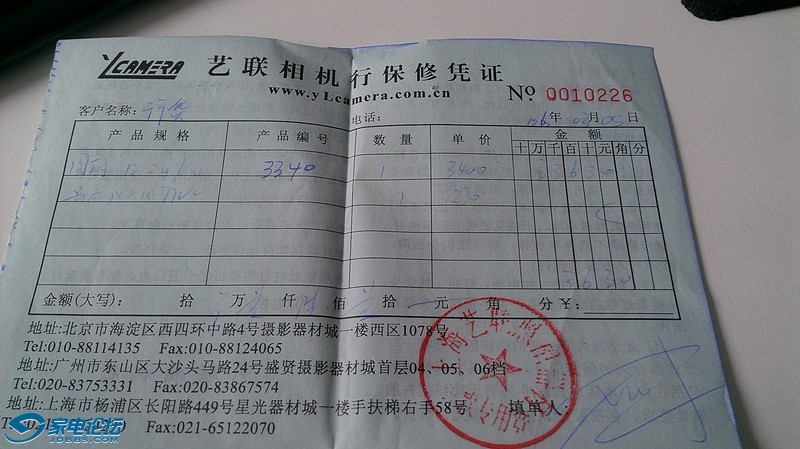 YCAMERA 艺联相机行保修凭证
www.yLcamera.com.cn № 0010226
客户名称: 电话: 年 月 日
产品规格 产品编号 数量 单价 金额
十 万 千 百 十 元 角 分
3340 1 3400 3 6 3 0
1 230
3 6 3 0
金额(大写): 拾 万 仟 佰 拾 元 角 分 ¥:
地址:北京市海淀区西四环中路4号摄影器材城一楼西区1078号
Tel:010-88114135 Fax:010-88124065
地址:广州市东山区大沙头马路24号盛贤摄影器材城首层04、05、06档
Tel:020-83753331 Fax:020-83867574
地址:上海市杨浦区长阳路449号星光器材城一楼手扶梯右手58号 填单人:
Fax:021-65122070
家电论坛
JDBBS.COM